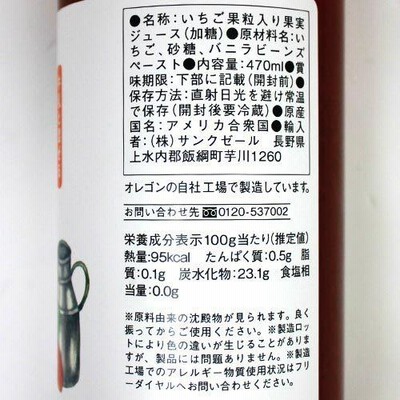 ●名称:いちご果粒入り果実
ジュース(加糖)●原材料名:い
ちご、砂糖、バニラビーンズ
ペースト●内容量:470ml●賞
味期限:下部に記載(開封前)●
保存方法:直射日光を避け常温
で保存(開封後要冷蔵)●原産
国名:アメリカ合衆国●輸入
者:(株)サンクゼール 長野県
上水内郡飯綱町芋川1260
オレゴンの自社工場で製造しています。
お問い合わせ先 0120-537002
栄養成分表示100g当たり(推定値)
熱量:95kcal たんぱく質:0.5g 脂
質:0.1g 炭水化物:23.1g 食塩相
当量:0.0g
※原料由来の沈殿物が見られます。良く
振ってからご使用ください。※製造ロッ
トにより色の違いが生じることがありま
すが、製品には問題ありません。※製造工
場でのアレルギー物質使用状況はフリ
ーダイヤルへお問い合わせください。